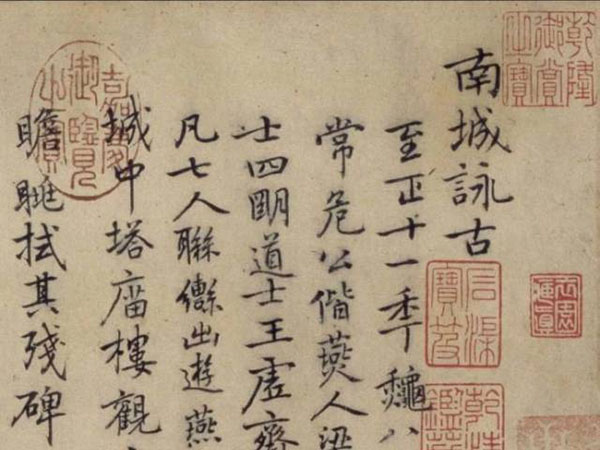 南城詠古
至正十一秊龝八
常危公偕燕人梁
士四朙道士王虛齋
凡七人聮轡出遊燕
城中塔庿樓觀
瞻眺拭其殘碑
乾隆御賞之寶
石渠寶笈
嘉慶御覽之寶